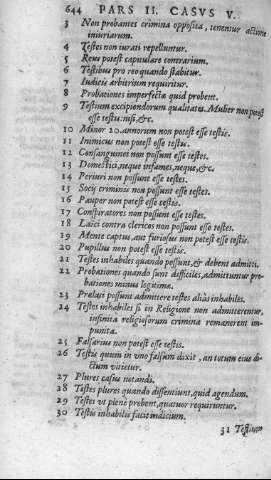 644 PARS II. CASVS V.
3 Non probantes crimina opposita, tenentur actione
iniuriarum.
4 Testes non iurati repelluntur.
5 Reus potest capitulare contrarium.
6 Testibus pro reo quando stabitur.
7 Iudicis arbitrium requiritur.
8 Probationes imperfectæ quid probent.
9 Testium excipiendorum qualitates. Mulier non potest
esse testis: nisi, &c.
10 Minor 20. annorum non potest esse testis.
11 Inimicus non potest esse testis.
12 Consanguinei non possunt esse testes.
13 Domestici, neque infames, neque, &c.
14 Periuri non possunt esse testes.
15 Socij criminis non possunt esse testes.
16 Pauper non potest esse testis.
17 Conspiratores non possunt esse testes.
18 Laici contra clericos non possunt esse testes.
19 Mente captus, aut furiosus non potest esse testis.
20 Pupillus non potest esse testis.
21 Testes inhabiles quando possunt, & debent admitti.
22 Probationes quando sunt difficiles, admittuntur pro-
bationes minus legitimæ.
23 Prælati possunt admittere testes aliàs inhabiles.
24 Testes inhabiles si in Religione non admitterentur,
infinita religiosorum crimina remanerent im-
punita.
25 Falsarius non potest esse testis.
26 Testis quum in vno falsum dixit, an totum eius di-
ctum vitietur.
27 Plures casus notandi.
28 Testes plures quando dissentiunt, quid agendum.
29 Testes vt plene probent, quatuor requiruntur.
30 Testis inhabilis facit indicium.
31 Testium